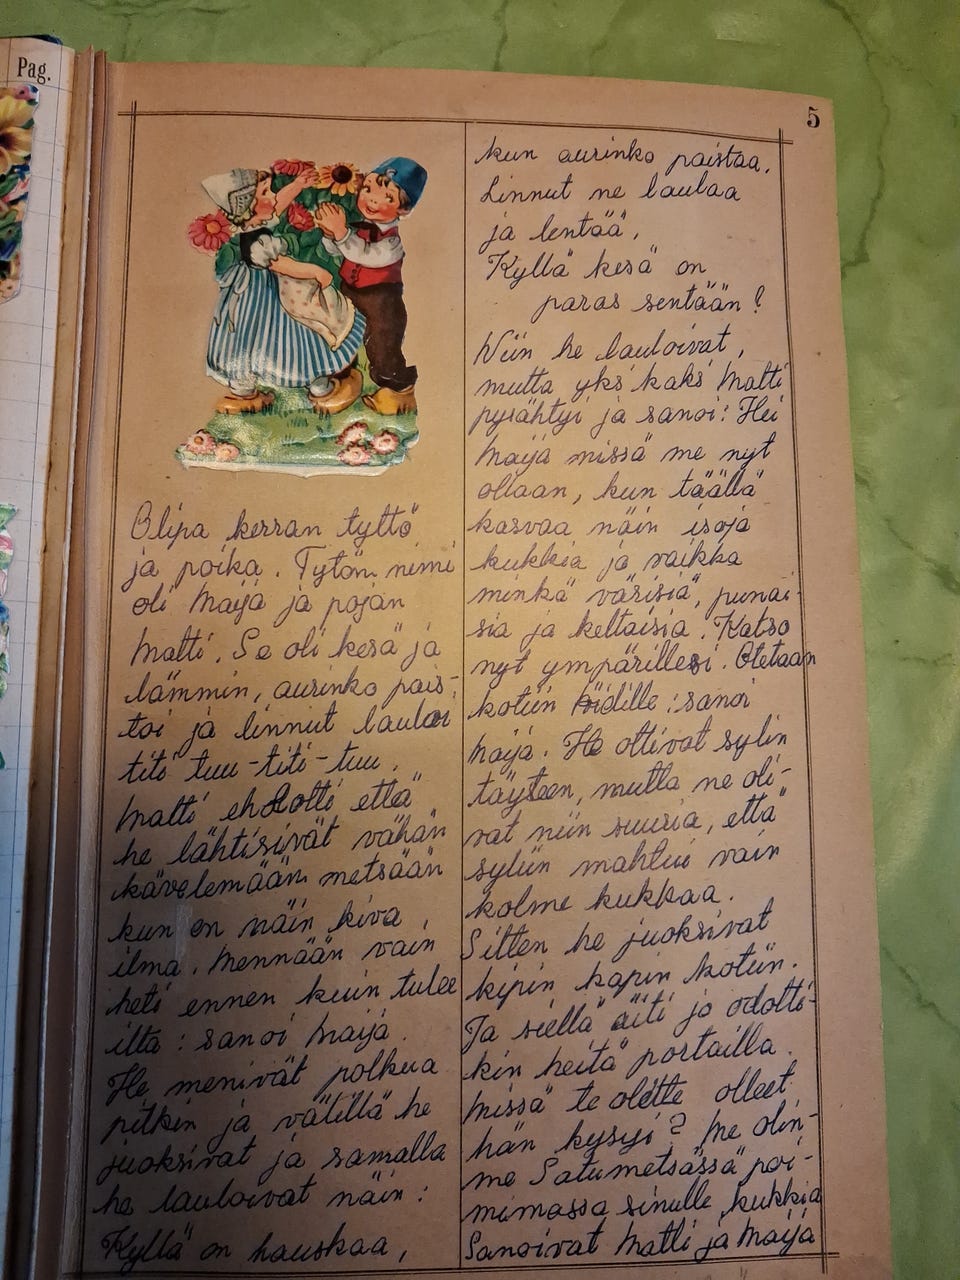 Pag.
5
Olipa kerran tyttö
ja poika. Tytön nimi
oli Maija ja pojan
Matti. Se oli kesä ja
lämmin, aurinko pais-
toi ja linnut lauloi
titi tuu-titi-tuu.
Matti ehdotti että
he lähtisivät vähän
kävelemään metsään
kun on näin kiva
ilma. Mennään vain
heti ennen kuin tulee
ilta: sanoi Maija.
He menivät polkua
pitkin ja välillä he
juoksivat ja samalla
he lauloivat näin:
Kyllä on hauskaa,
kun aurinko paistaa.
Linnut ne laulaa
ja lentää,
Kyllä kesä on
paras sentään!
Niin he lauloivat,
mutta yks' kaks' Matti
pysähtyi ja sanoi: Hei
Maija missä me nyt
ollaan, kun täällä
kasvaa näin isoja
kukkia ja vaikka
minkä värisiä, punai-
sia ja keltaisia. Katso
nyt ympärillesi. Otetaan
kotiin äidille: sanoi
Maija. He ottivat sylin
täyteen, mutta ne oli-
vat niin suuria, että
syliin mahtui vain
kolme kukkaa.
Sitten he juoksivat
kipin kapin kotiin.
Ja siellä äiti jo odotti-
kin heitä portailla.
Missä te olette olleet
hän kysyi? Me olim-
me Satumetsässä poi-
mimassa sinulle kukkia
Sanoivat Matti ja Maija